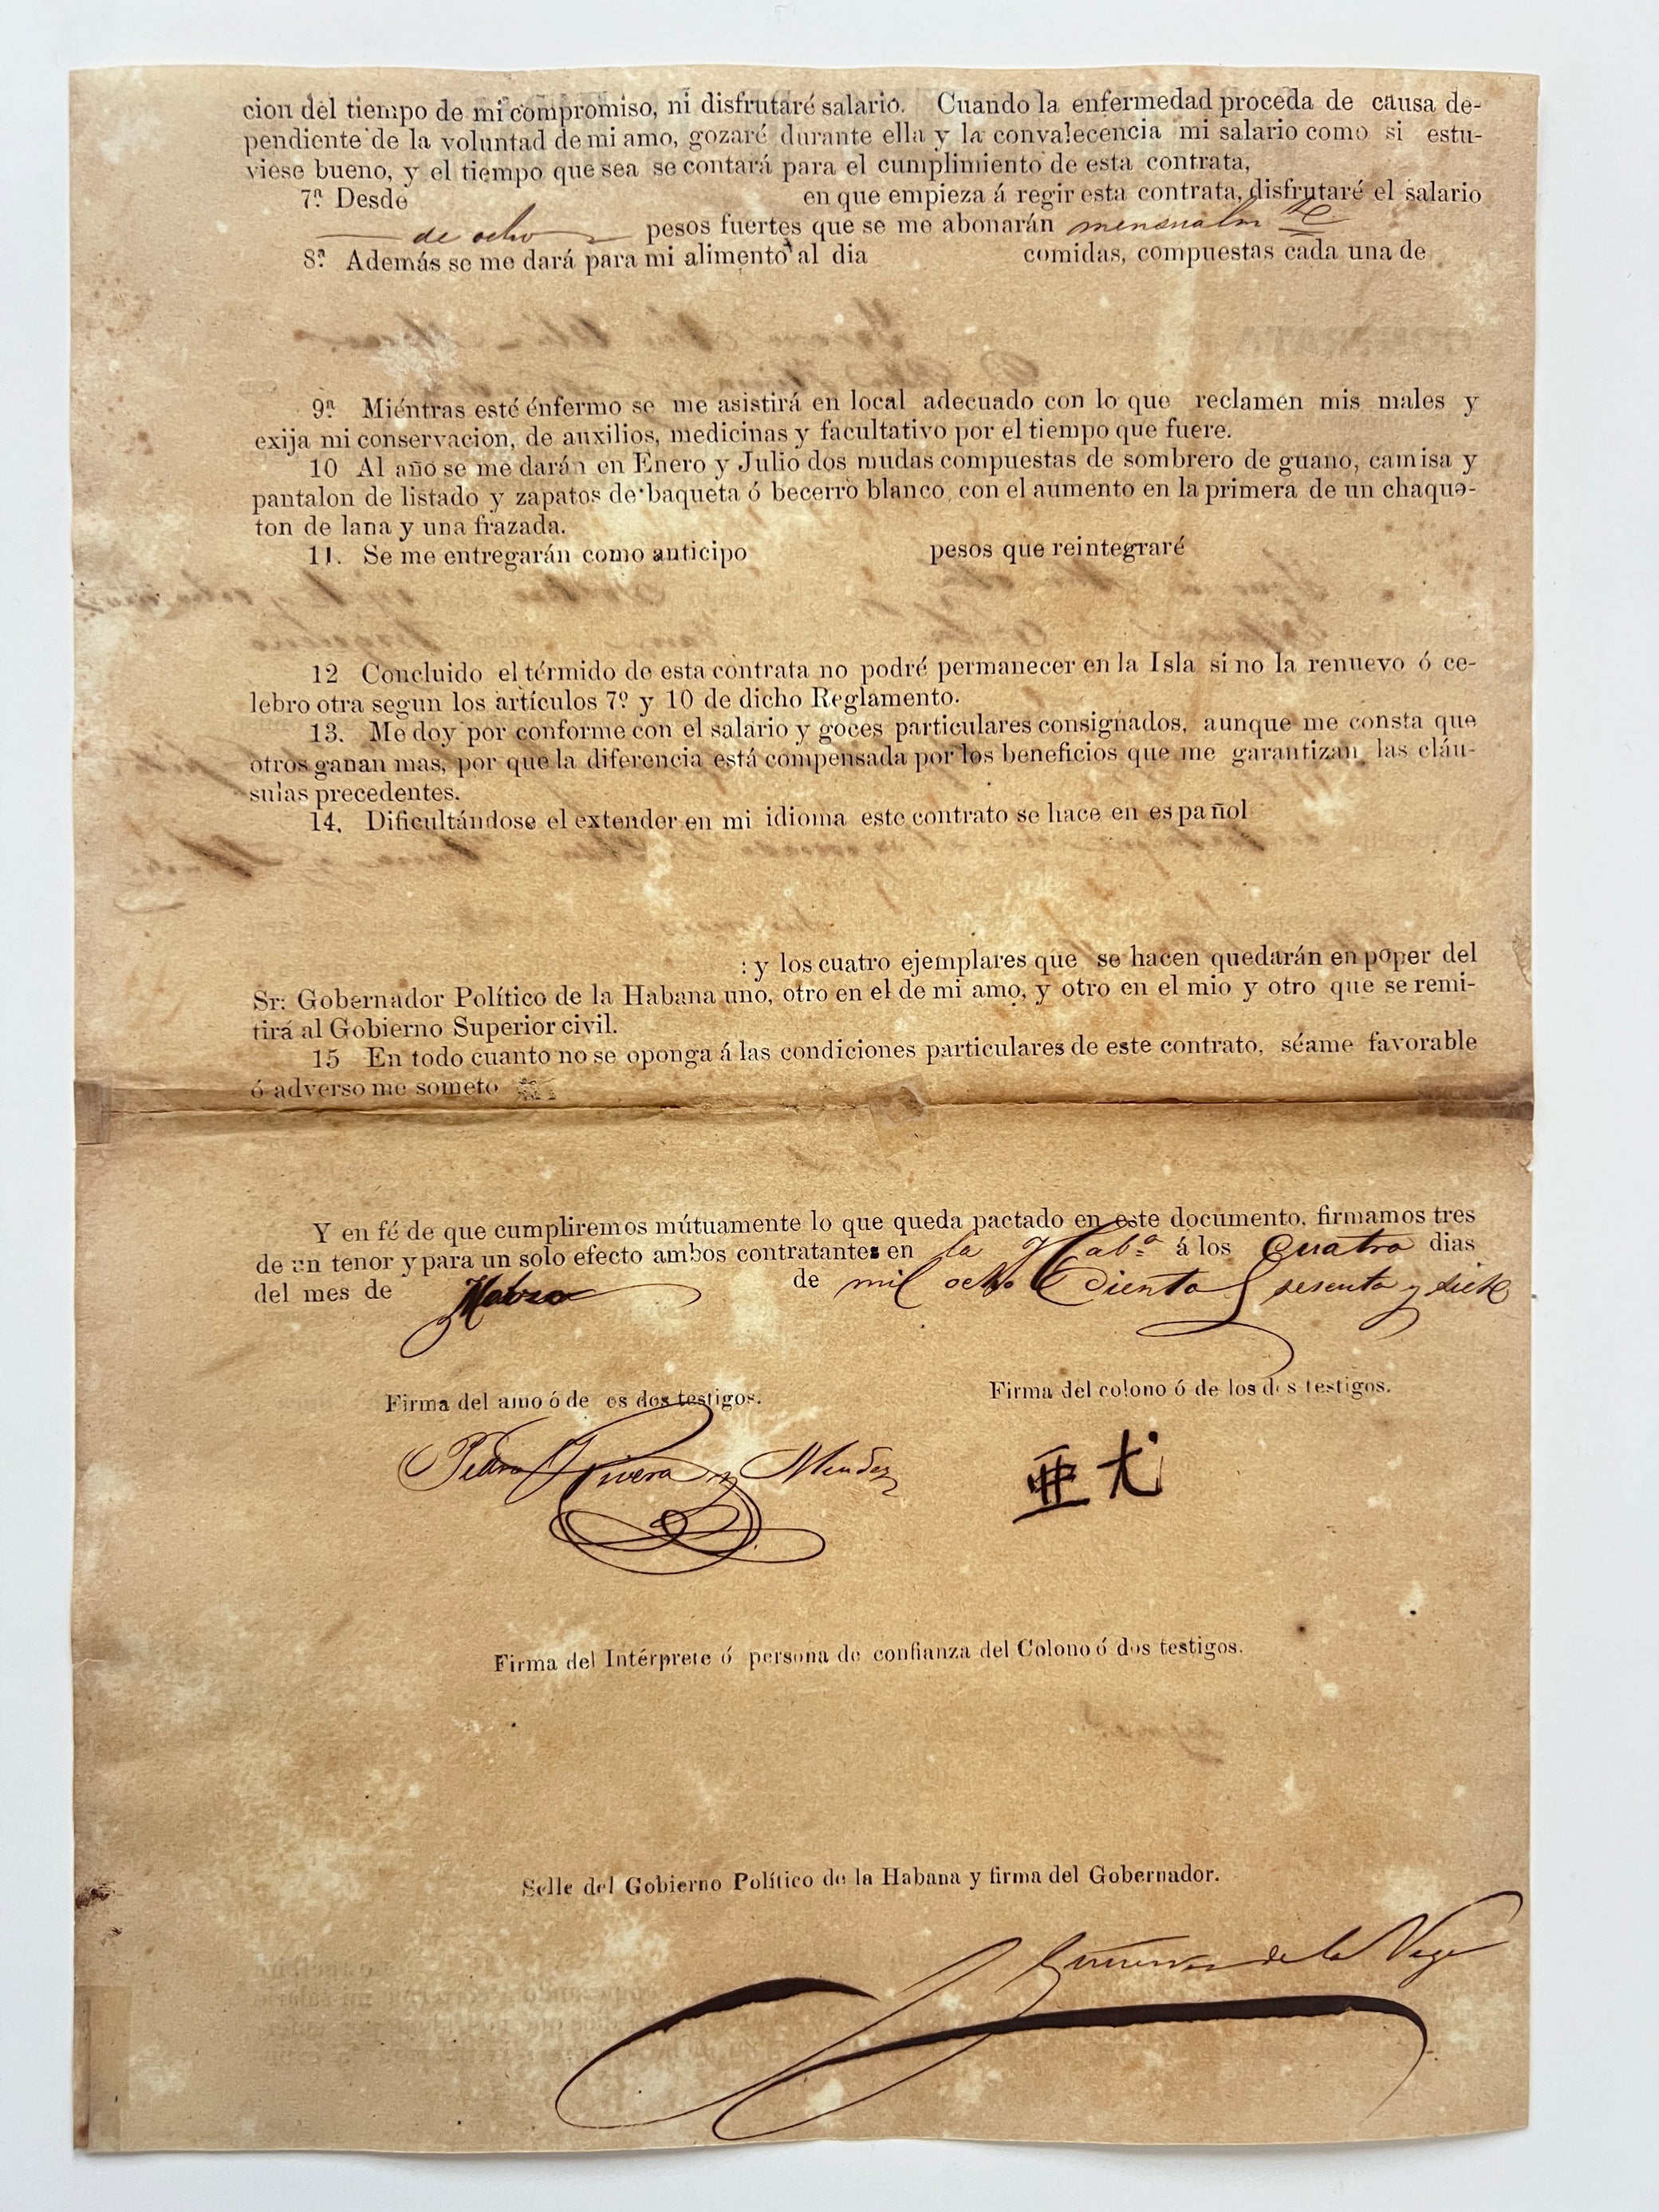 cion del tiempo de mi compromiso, ni disfrutaré salario. Cuando la enfermedad proceda de causa de-
pendiente de la voluntad de mi amo, gozaré durante ella y la convalecencia mi salario como si estu-
viese bueno, y el tiempo que sea se contará para el cumplimiento de esta contrata,
7ª Desde en que empieza á regir esta contrata, disfrutaré el salario
de ocho pesos fuertes que se me abonarán mensualmte
8ª Además se me dará para mi alimento al dia comidas, compuestas cada una de
9ª Miéntras esté énfermo se me asistirá en local adecuado con lo que reclamen mis males y
exija mi conservacion, de auxilios, medicinas y facultativo por el tiempo que fuere.
10 Al año se me darán en Enero y Julio dos mudas compuestas de sombrero de guano, camisa y
pantalon de listado y zapatos de baqueta ó becerro blanco, con el aumento en la primera de un chaque-
ton de lana y una frazada.
11. Se me entregarán como anticipo pesos que reintegraré
12 Concluido el térmido de esta contrata no podré permanecer en la Isla si no la renuevo ó ce-
lebro otra segun los artículos 7º y 10 de dicho Reglamento.
13. Me doy por conforme con el salario y goces particulares consignados, aunque me consta que
otros ganan mas, por que la diferencia está compensada por los beneficios que me garantizan las cláu-
sulas precedentes.
14. Dificultándose el extender en mi idioma este contrato se hace en español
: y los cuatro ejemplares que se hacen quedarán en poper del
Sr: Gobernador Político de la Habana uno, otro en el de mi amo, y otro en el mio y otro que se remi-
tirá al Gobierno Superior civil.
15 En todo cuanto no se oponga á las condiciones particulares de este contrato, séame favorable
ó adverso me someto
Y en fé de que cumpliremos mútuamente lo que queda pactado en este documento, firmamos tres
de un tenor y para un solo efecto ambos contratantes en la Habª á los Cuatro dias
del mes de Marzo de mil ocho Ciento sesenta y siete
Firma del amo ó de os dos testigos. Firma del colono ó de los dos testigos.
Pedro Rivera y Mendez 亜尤
Firma del Intérprete ó persona de confianza del Colono ó dos testigos.
Selle del Gobierno Político de la Habana y firma del Gobernador.
de la Vega